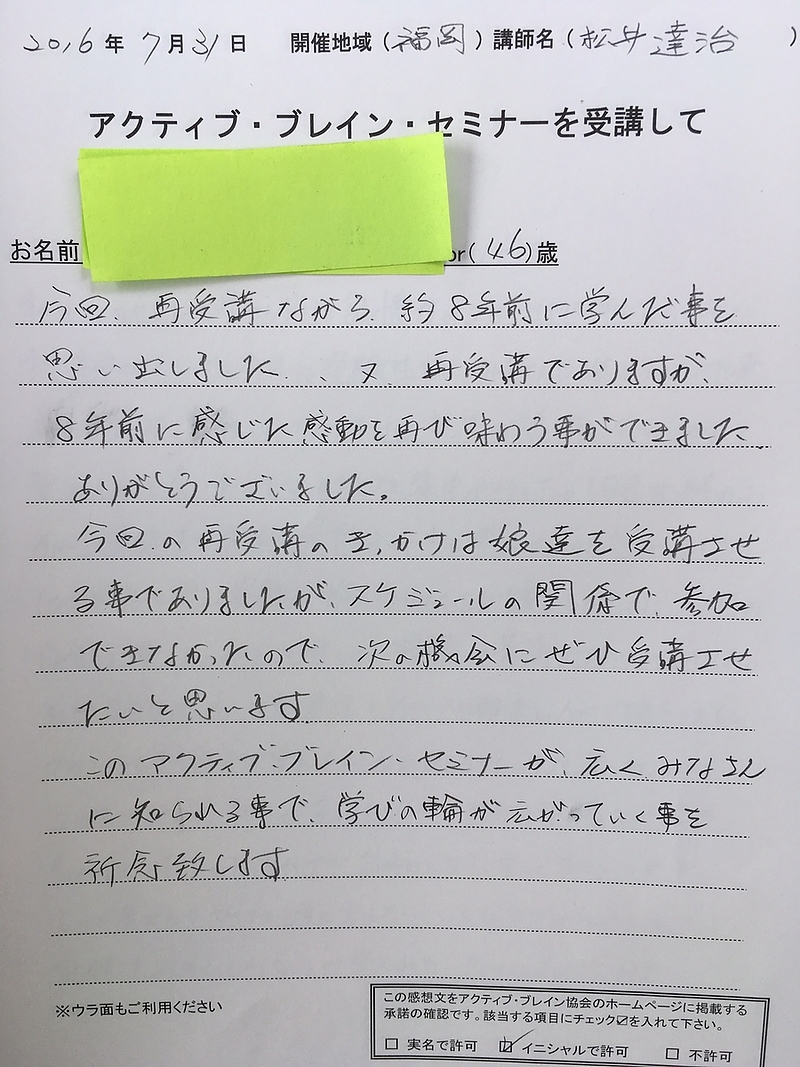 2016年7月31日 開催地域（福岡）講師名（松井達治 ）
アクティブ・ブレイン・セミナーを受講して
お名前 or(46)歳
今回、再受講ながら、約8年前に学んだ事を
思い出しました、、又、再受講でありますが、
8年前に感じた感動を再び味わう事ができました、
ありがとうございました。
今回の再受講のきっかけは娘達を受講させ
る事でありましたが、スケジュールの関係で、参加
できなかったので、次の機会にぜひ受講させ
たいと思います
このアクティブ・ブレイン・セミナーが、広くみなさん
に知られる事で、学びの輪が広がっていく事を
祈念致します
※ウラ面もご利用ください
この感想文をアクティブ・ブレイン協会のホームページに掲載する
承諾の確認です。該当する項目にチェック☑を入れて下さい。
☐ 実名で許可 ☑ イニシャルで許可 ☐ 不許可